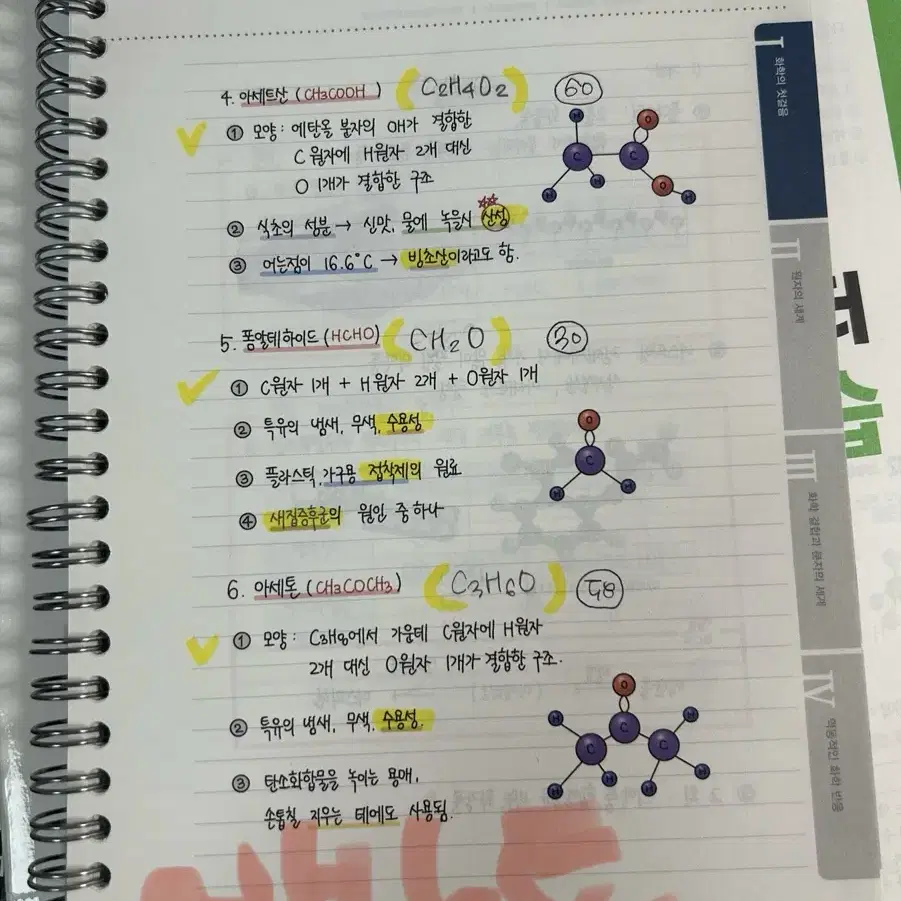 4. 아세트산 (CH3COOH) (C2H4O2) 60
① 모양: 에탄올 분자의 OH가 결합한
C 원자에 H원자 2개 대신
O 1개가 결합한 구조
② 식초의 성분 → 신맛, 물에 녹을시 산성
③ 어는점이 16.6°C → 빙초산이라고도 함.
H
O
C
C
H
H
O
H
5. 폼알데하이드 (HCHO) (CH2O) 30
① C원자 1개 + H원자 2개 + O원자 1개
② 특유의 냄새, 무색, 수용성
③ 플라스틱, 가구용 접착제의 원료
④ 새집증후군의 원인 중 하나
O
C
H
H
6. 아세톤 (CH3COCH3) (C3H6O) 58
① 모양: C3H8에서 가운데 C원자에 H원자
2개 대신 O원자 1개가 결합한 구조.
② 특유의 냄새, 무색, 수용성.
③ 탄소화합물을 녹이는 용매,
손톱칠 지우는 데에도 사용됨.
O
H
C
H
C
C
H
H
H
H
I 화학의 첫걸음
II 원자의 세계
III 화학 결합과 분자의 세계
IV 역동적인 화학 반응